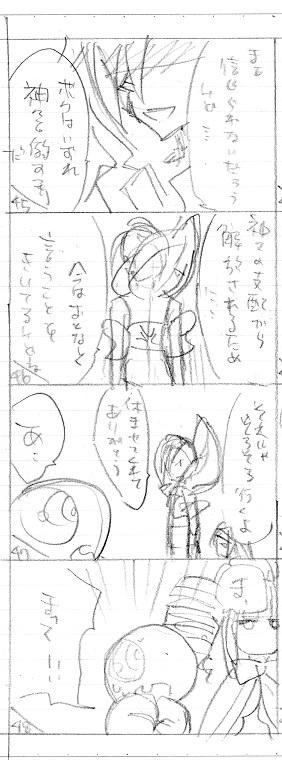 まだ
信じられないだろう
けど……
ボクはいずれ
神々を倒すもの
だ
45
神々の支配から
解放されるため
……
今はおとなしく
言うことを
きいてるけどね
46
それじゃ
そろそろ行くよ
休ませてくれて
ありがとう
あ…
47
ま、
まって…
48